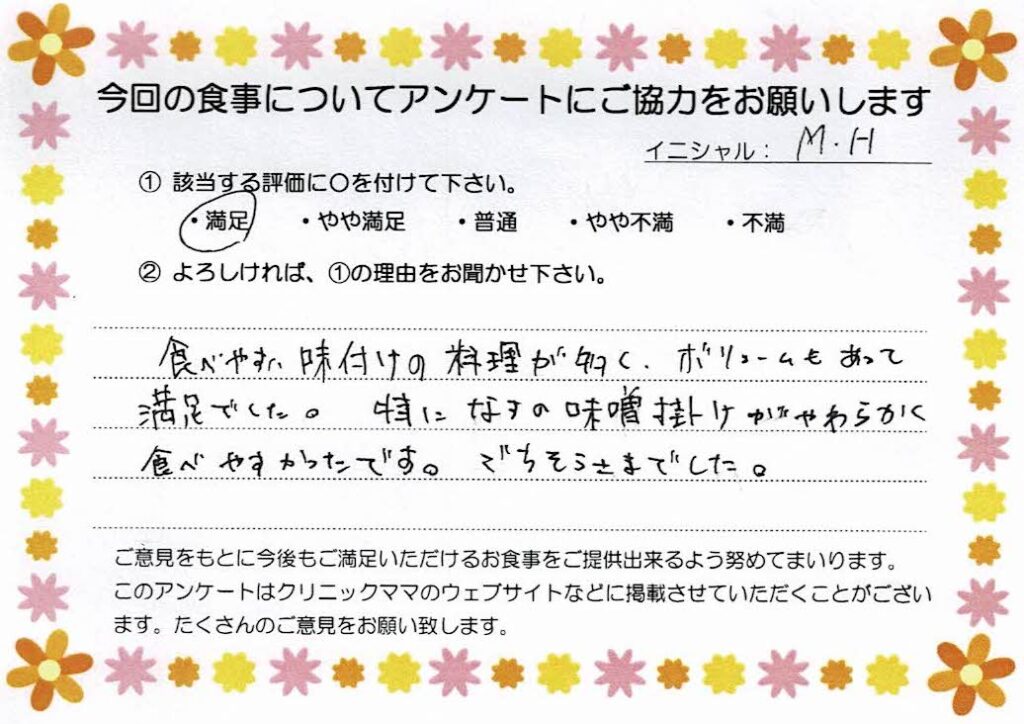 今回の食事についてアンケートにご協力をお願いします
イニシャル： M.H
① 該当する評価に〇を付けて下さい。
・満足 ・やや満足 ・普通 ・やや不満 ・不満
② よろしければ、①の理由をお聞かせ下さい。
食べやすい味付けの料理が多く、ボリュームもあって
満足でした。 特になすの味噌掛けがやわらかく
食べやすかったです。 ごちそうさまでした。
ご意見をもとに今後もご満足いただけるお食事をご提供出来るよう努めてまいります。
このアンケートはクリニックママのウェブサイトなどに掲載させていただくことがござい
ます。たくさんのご意見をお願い致します。